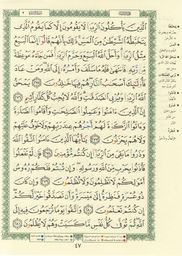 ٱلَّذِينَ يَأۡكُلُونَ ٱلرِّبَوٰاْ لَا يَقُومُونَ إِلَّا كَمَا يَقُومُ ٱلَّذِي
يَتَخَبَّطُهُ ٱلشَّيۡطَٰنُ مِنَ ٱلۡمَسِّۚ ذَٰلِكَ بِأَنَّهُمۡ قَالُوٓاْ إِنَّمَا ٱلۡبَيۡعُ
مِثۡلُ ٱلرِّبَوٰاْۗ وَأَحَلَّ ٱللَّهُ ٱلۡبَيۡعَ وَحَرَّمَ ٱلرِّبَوٰاْۚ فَمَن جَآءَهُۥ مَوۡعِظَةٞ
مِّن رَّبِّهِۦ فَٱنتَهَىٰ فَلَهُۥ مَا سَلَفَ وَأَمۡرُهُۥٓ إِلَى ٱللَّهِۖ وَمَنۡ عَادَ
فَأُوْلَٰٓئِكَ أَصۡحَٰبُ ٱلنَّارِۖ هُمۡ فِيهَا خَٰلِدُونَ ٢٧٥ يَمۡحَقُ ٱللَّهُ
ٱلرِّبَوٰاْ وَيُرۡبِي ٱلصَّدَقَٰتِۗ وَٱللَّهُ لَا يُحِبُّ كُلَّ كَفَّارٍ أَثِيمٍ ٢٧٦
إِنَّ ٱلَّذِينَ ءَامَنُواْ وَعَمِلُواْ ٱلصَّٰلِحَٰتِ وَأَقَامُواْ ٱلصَّلَوٰةَ
وَءَاتَوُاْ ٱلزَّكَوٰةَ لَهُمۡ أَجۡرُهُمۡ عِندَ رَبِّهِمۡ وَلَا خَوۡفٌ عَلَيۡهِمۡ
وَلَا هُمۡ يَحۡزَنُونَ ٢٧٧ يَٰٓأَيُّهَا ٱلَّذِينَ ءَامَنُواْ ٱتَّقُواْ ٱللَّهَ
وَذَرُواْ مَا بَقِيَ مِنَ ٱلرِّبَوٰٓاْ إِن كُنتُم مُّؤۡمِنِينَ ٢٧٨ فَإِن لَّمۡ تَفۡعَلُواْ
فَأۡذَنُواْ بِحَرۡبٖ مِّنَ ٱللَّهِ وَرَسُولِهِۦۖ وَإِن تُبۡتُمۡ فَلَكُمۡ رُءُوسُ
أَمۡوَٰلِكُمۡ لَا تَظۡلِمُونَ وَلَا تُظۡلَمُونَ ٢٧٩ وَإِن كَانَ
ذُو عُسۡرَةٖ فَنَظِرَةٌ إِلَىٰ مَيۡسَرَةٖۚ وَأَن تَصَدَّقُواْ خَيۡرٞ لَّكُمۡ
إِن كُنتُمۡ تَعۡلَمُونَ ٢٨٠ وَٱتَّقُواْ يَوۡمٗا تُرۡجَعُونَ فِيهِ إِلَى
ٱللَّهِۖ ثُمَّ تُوَفَّىٰ كُلُّ نَفۡسٖ مَّا كَسَبَتۡ وَهُمۡ لَا يُظۡلَمُونَ ٢٨١
٤٧